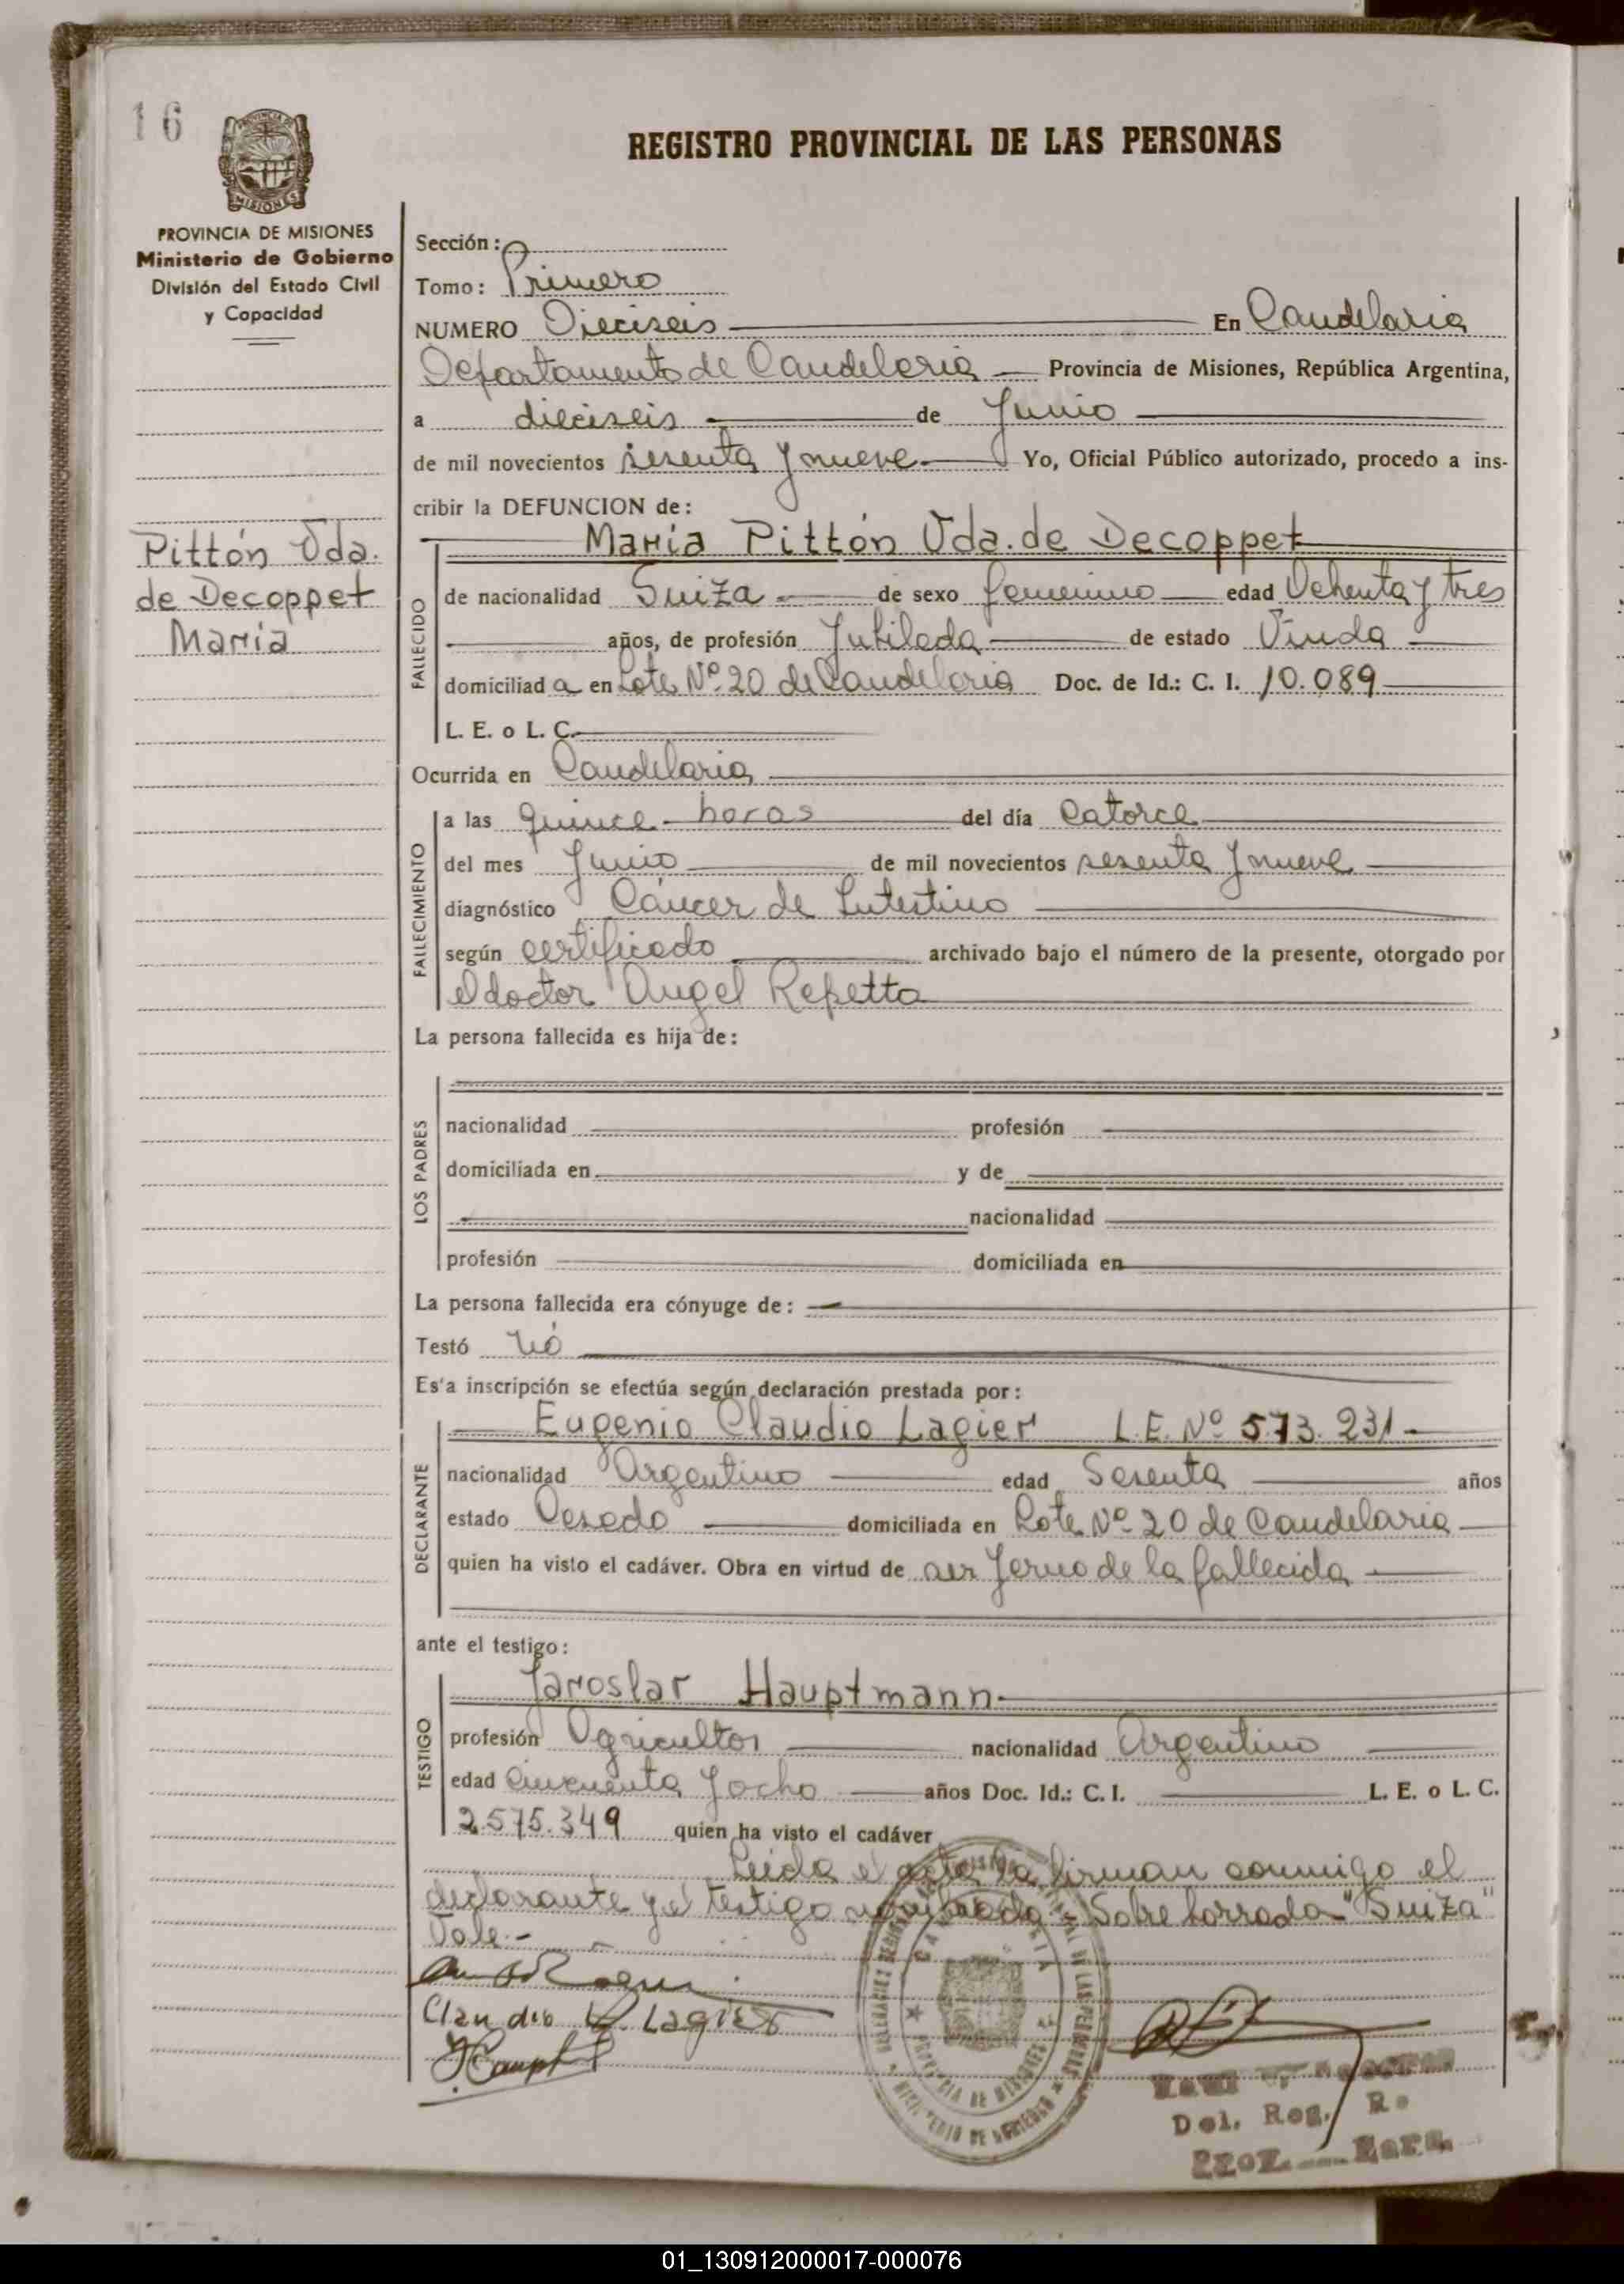 16
PROVINCIA DE MISIONES
Ministerio de Gobierno
División del Estado Civil
y Capacidad
Pittón Vda.
de Decoppet
María
REGISTRO PROVINCIAL DE LAS PERSONAS
Sección:
Tomo: Primero
NUMERO Dieciseis En Candelaria
Departamento de Candelaria Provincia de Misiones, República Argentina,
a dieciseis de Junio
de mil novecientos sesenta y nueve Yo, Oficial Público autorizado, procedo a ins-
cribir la DEFUNCION de:
María Pittón Vda. de Decoppet
FALLECIDO
de nacionalidad Suiza de sexo femenino edad Ochenta y tres
años, de profesión Jubilada de estado Viuda
domiciliad a en Lote Nº 20 de Candelaria Doc. de Id.: C. I. 10.089
L. E. o L. C.
Ocurrida en Candelaria
FALLECIMIENTO
a las quince horas del día Catorce
del mes Junio de mil novecientos sesenta y nueve
diagnóstico Cáncer de Intestino
según certificado archivado bajo el número de la presente, otorgado por
el doctor Angel Repetto
La persona fallecida es hija de:
LOS PADRES
nacionalidad profesión
domiciliada en y de
nacionalidad
profesión domiciliada en
La persona fallecida era cónyuge de:
Testó nó
Es'a inscripción se efectúa según declaración prestada por:
DECLARANTE
Eugenio Claudio Lagier L.E. Nº 573.231-
nacionalidad Argentino edad Sesenta años
estado Casado domiciliada en Lote Nº 20 de Candelaria
quien ha visto el cadáver. Obra en virtud de ser Yerno de la fallecida
ante el testigo:
TESTIGO
Jaroslar Hauptmann
profesión Agricultor nacionalidad Argentino
edad cincuenta y ocho años Doc. Id.: C. I. L. E. o L. C.
2.575.349 quien ha visto el cadáver
Leida el acta la firman conmigo el
declarante y el testigo nombrado - Sobre borrado "Suiza"
Vale.-
Claudio Lagier
Del. Reg.
01_130912000017-000076